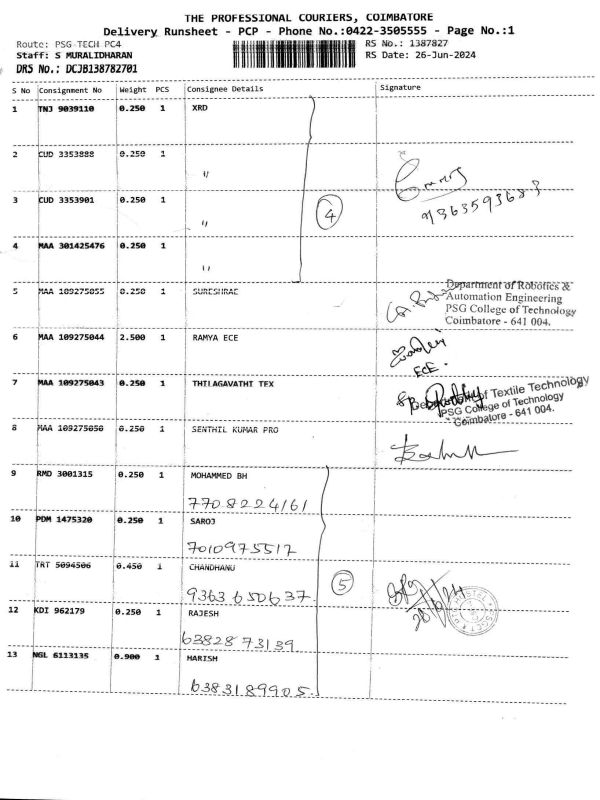 THE PROFESSIONAL COURIERS, COIMBATORE
Delivery Runsheet - PCP - Phone No.:0422-3505555 - Page No.:1
Route: PSG TECH PC4 RS No.: 1387827
Staff: S MURALIDHARAN RS Date: 26-Jun-2024
DRS No.: DCJB138782701
S No Consignment No Weight PCS Consignee Details Signature
1 TNJ 9039110 0.250 1 XRD
2 CUD 3353888 0.250 1 "
3 CUD 3353901 0.250 1 "
4
9363593683
4 MAA 301425476 0.250 1 "
5 MAA 109275055 0.250 1 SURESHRAE
Department of Robotics &
Automation Engineering
PSG College of Technology
Coimbatore - 641 004.
6 MAA 109275044 2.500 1 RAMYA ECE
ECE.
7 MAA 109275043 0.250 1 THILAGAVATHI TEX
Department of Textile Technology
PSG College of Technology
Coimbatore - 641 004.
8 MAA 109275050 0.250 1 SENTHIL KUMAR PRO
9 RMD 3001315 0.250 1 MOHAMMED BH
7708224161
10 PDM 1475320 0.250 1 SAROJ
7010975517
11 TRT 5094506 0.450 1 CHANDHANU
9363650637
5
12 KDI 962179 0.250 1 RAJESH
6382873139
13 NGL 6113135 0.900 1 HARISH
6383189905